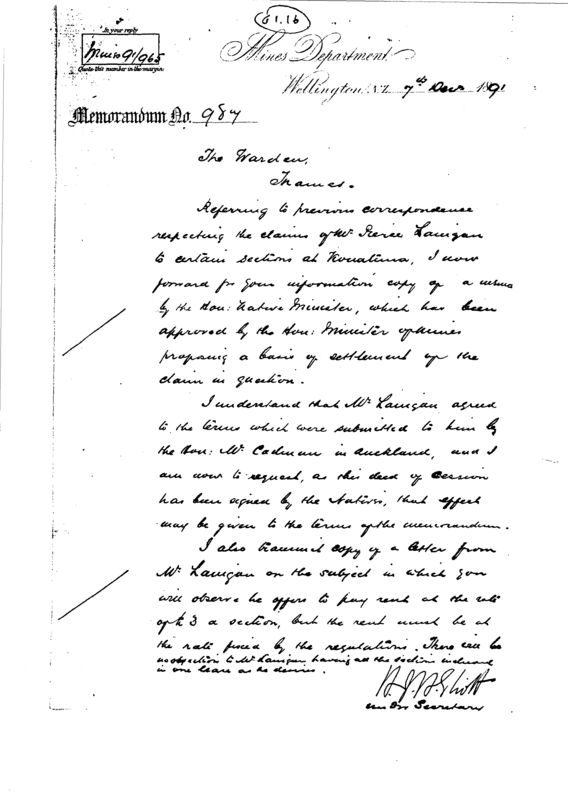 81.16
In your reply
Mines 91/965
Quote this number in the margin
Mines Department
Wellington N.Z. 7th Decr 1891
Memorandum No. 987
The Warden,
Thames.
Referring to previous correspondence
respecting the claims of Mr Pierce Lanigan
to certain sections at I now
forward for your information copy of a memo
by the Hon: Native Minister, which has been
approved by the Hon: Minister of Mines
proposing a basis of settlement of the
claim in question.
I understand that Mr Lanigan agreed
to the terms which were submitted to him by
the Hon: Mr Cadman in Auckland, and I
am now to request, as this deed of cession
has been signed by the Natives, that effect
may be given to the terms of the memorandum.
I also transmit copy of a letter from
Mr Lanigan on the subject in which you
will observe he offers to pay rent at the rate
of £3 a section, but the rent must be at
the rate fixed by the regulations. There will be
no objection to Mr Lanigan having all the sections included
in one lease as he desires.
H.J.H. Eliott
Under Secretary